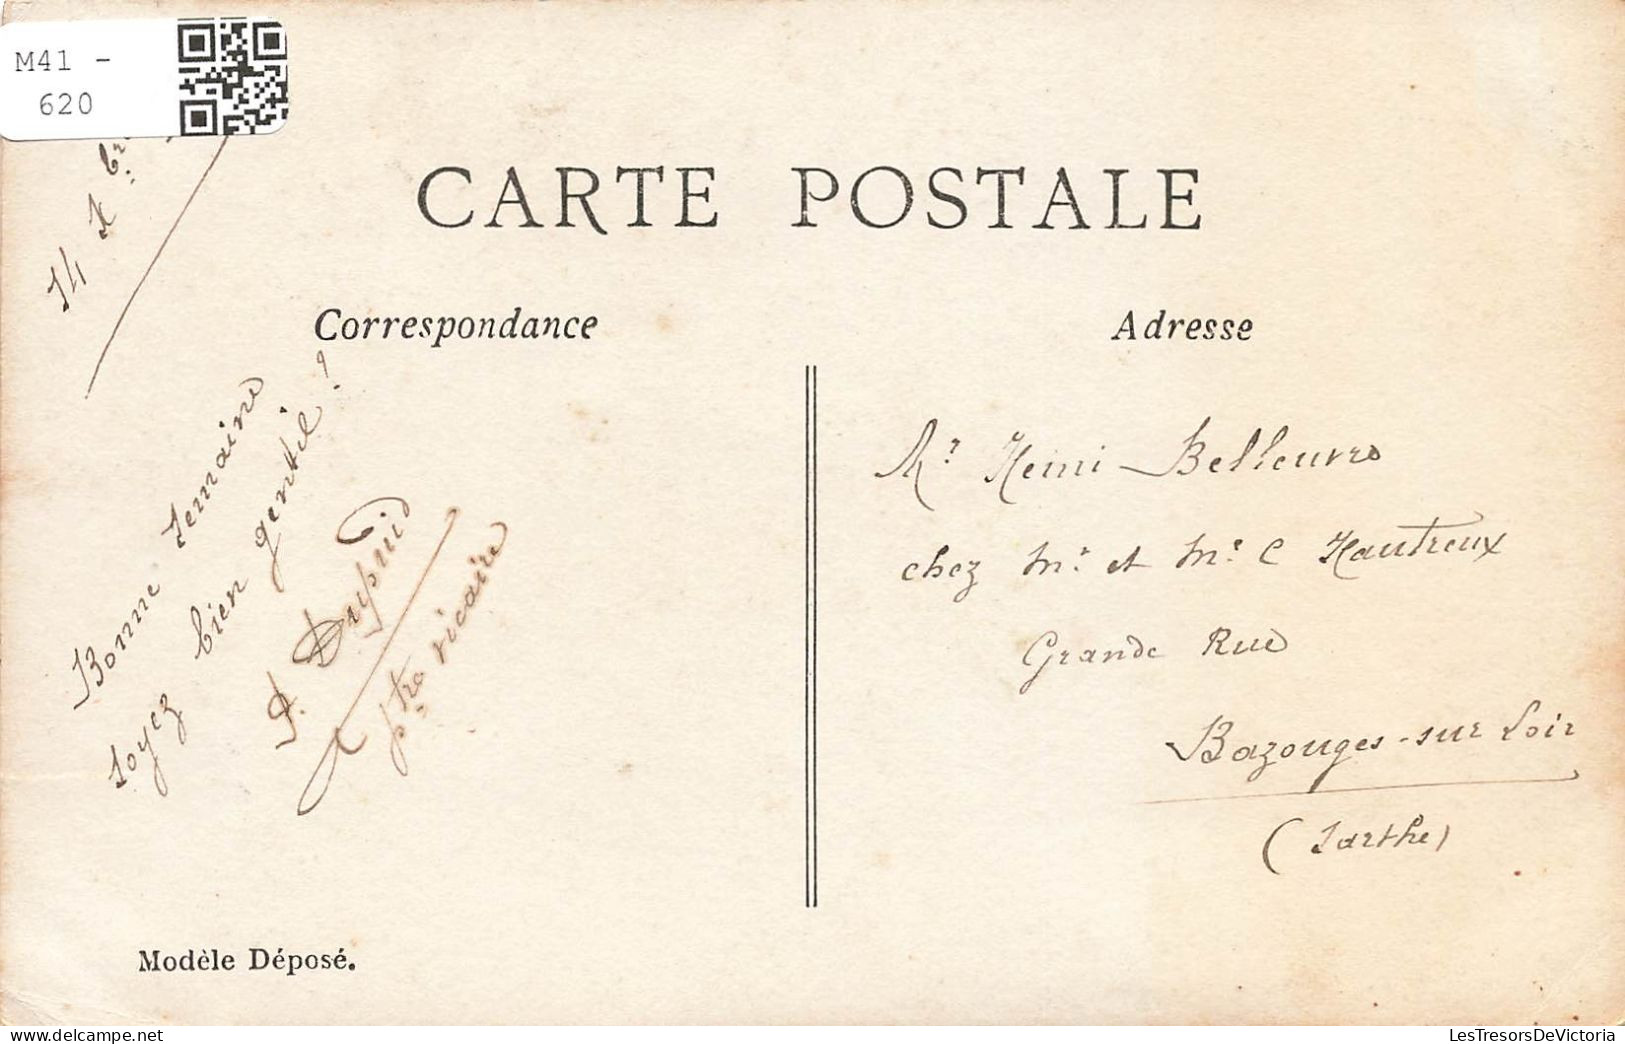 M41 -
620
14 X bre
CARTE POSTALE
Correspondance
Adresse
Bonne semaine
soyez bien gentil!
Dupuid
ptre vicaire
Mr Henri Belleuvre
chez Mr et Me C Hautreux
Grande Rue
Bazouges-sur Loir
(Sarthe)
Modèle Déposé.
LesTresorsDeVictoria